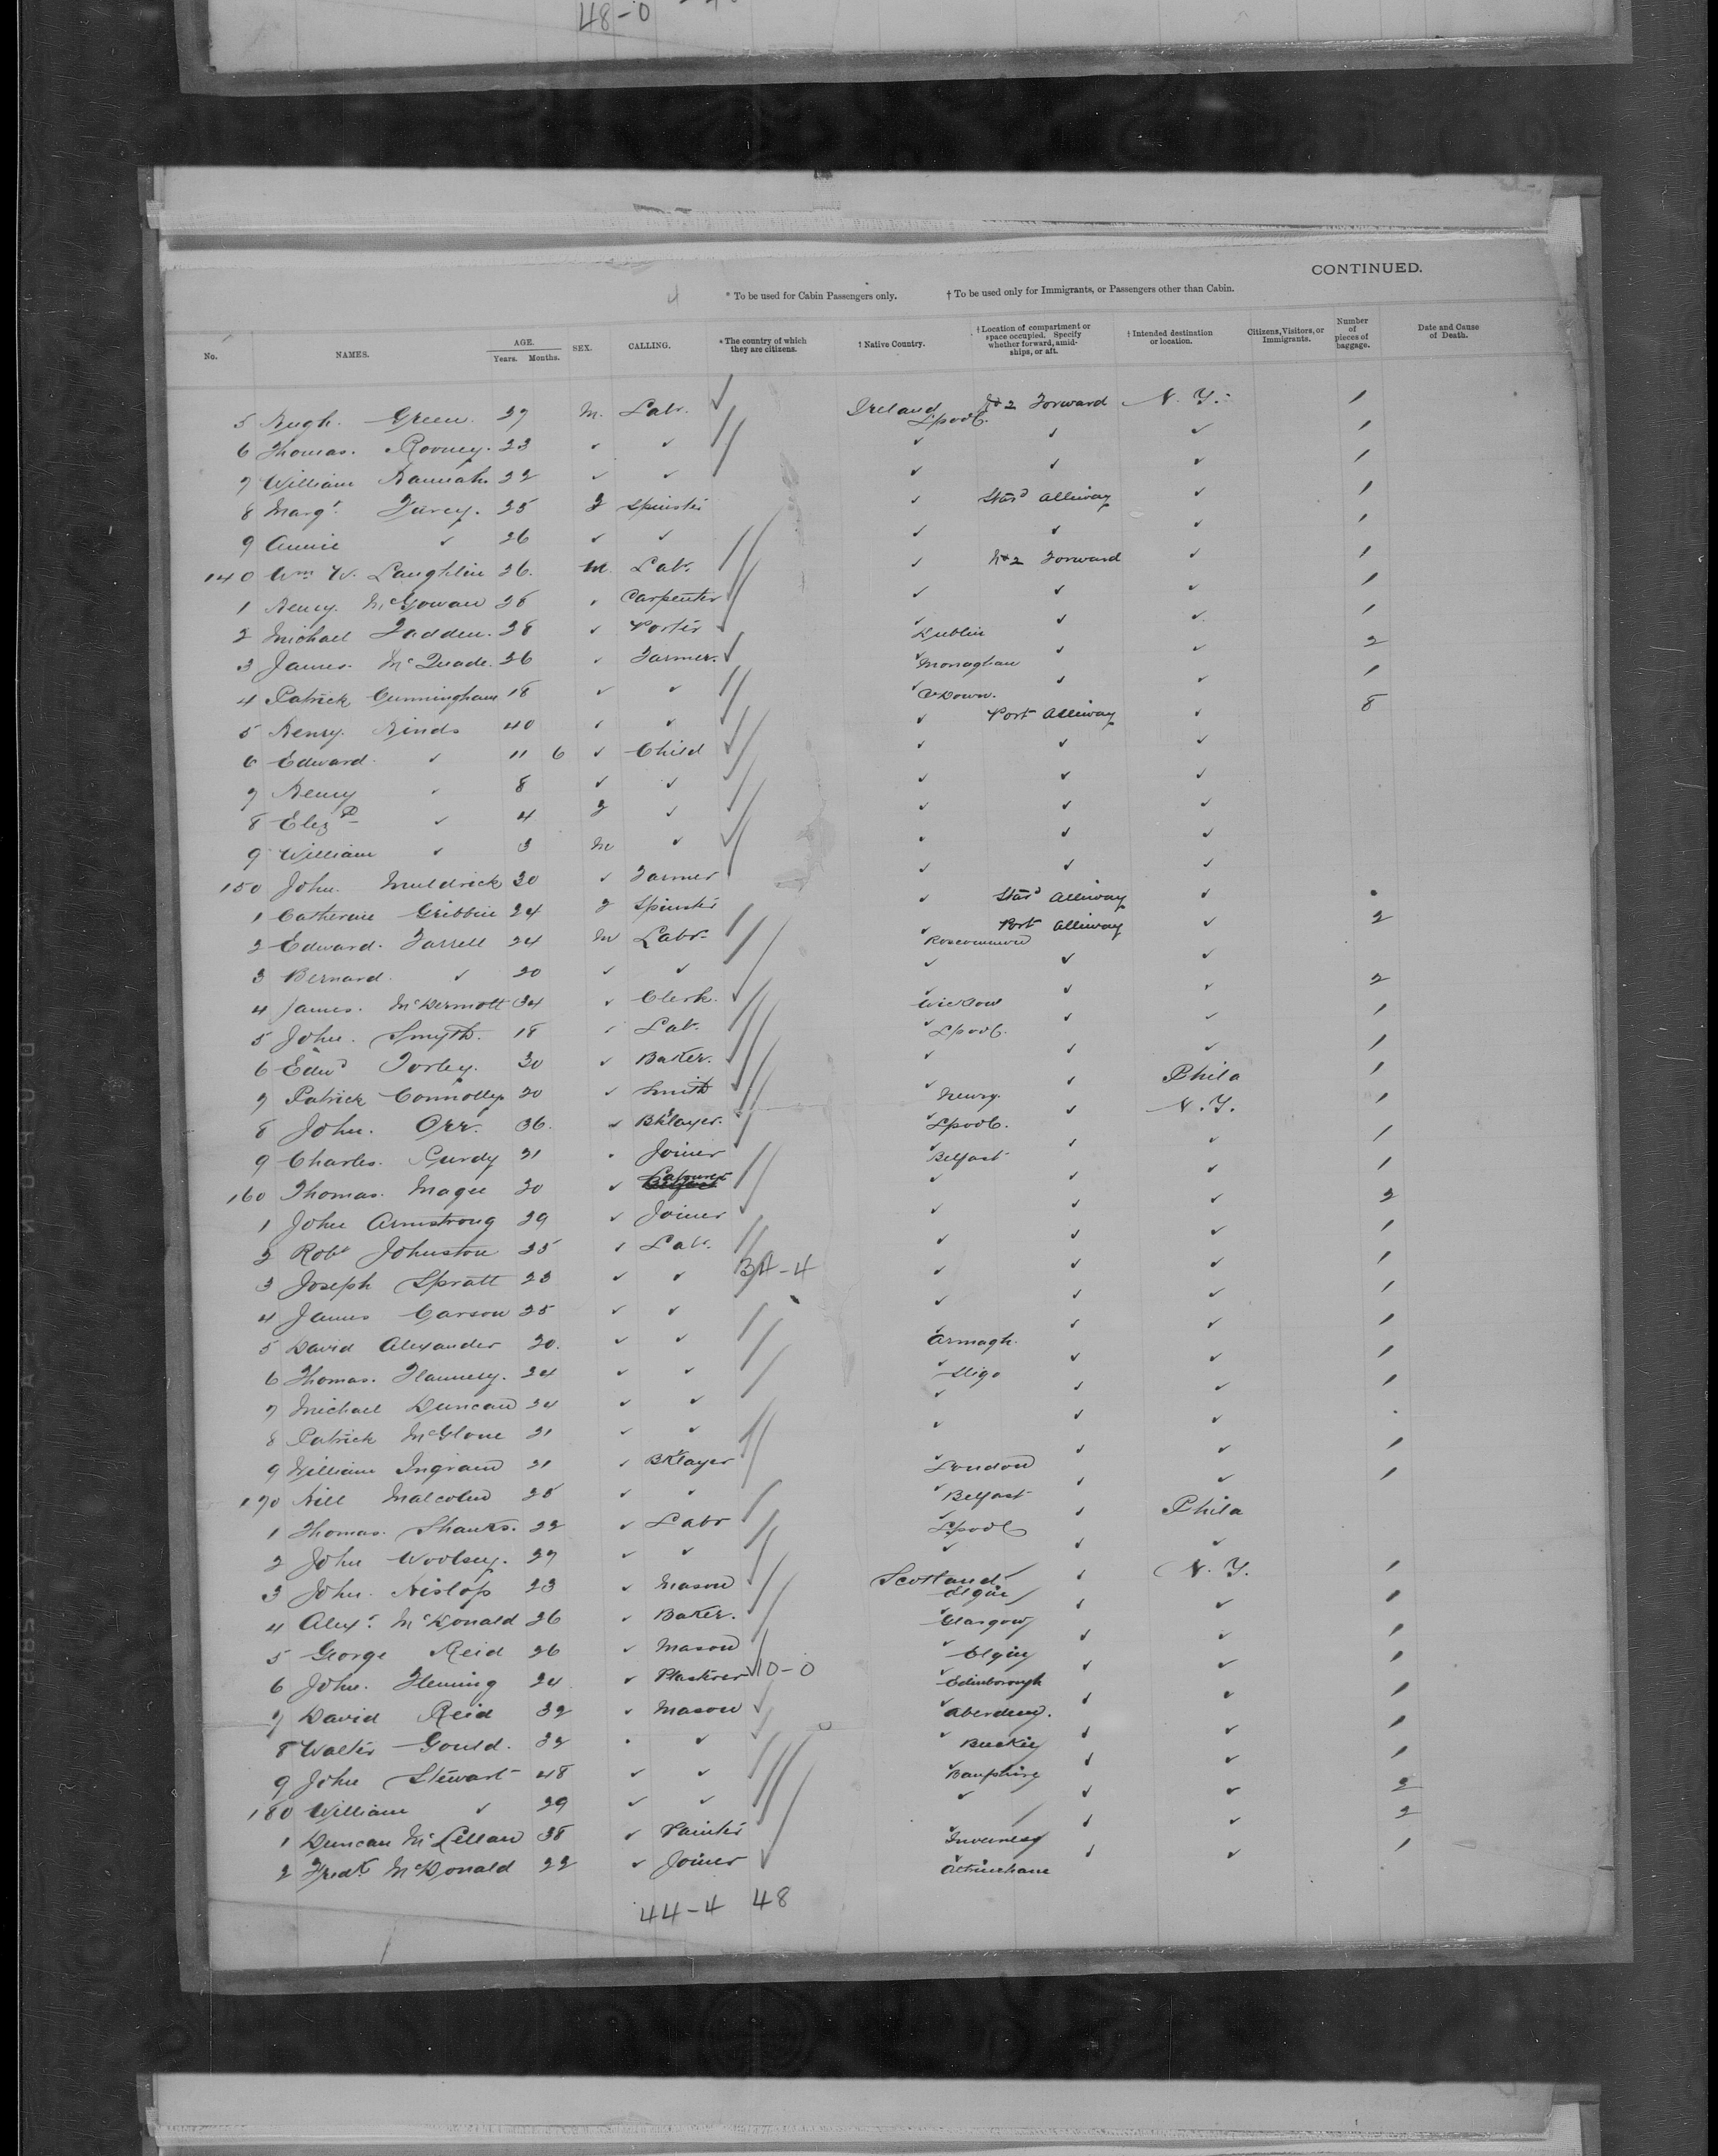 48-0
CONTINUED.
4 * To be used for Cabin Passengers only. † To be used only for Immigrants, or Passengers other than Cabin.
No. NAMES. AGE. Years. Months. SEX. CALLING. * The country of which they are citizens. † Native Country. † Location of compartment or space occupied. Specify whether forward, amidships, or aft. † Intended destination or location. Citizens, Visitors, or Immigrants. Number of pieces of baggage. Date and Cause of Death.
5 Hugh. Green. 27 M. Labr. ✓ Ireland L'pool. No 2 Forward N. Y. 1
6 Thomas. Rooney. 23 ✓ ✓ ✓ ✓ ✓ 1
7 William Hannah. 22 ✓ ✓ ✓ ✓ ✓ 1
8 Margt. Furey. 25 F Spinster ✓ Starb'd Alleway ✓ 1
9 Annie ✓ 26 ✓ ✓ ✓ ✓ ✓ 1
140 Wm W. Laughlin 26. M. Labr. ✓ No 2 Forward ✓ 1
1 Henry. McGowan 28 ✓ Carpenter ✓ ✓ ✓ 1
2 Michael Fadden. 28 ✓ Porter ✓ Dublin ✓ ✓ 1
3 James. McQuade. 26 ✓ Farmer. ✓ Monaghan ✓ ✓ 2
4 Patrick Cunningham 18 ✓ ✓ ✓ Co Down. ✓ ✓ 1
5 Henry. Hinds 40 ✓ ✓ ✓ Port Alleway ✓ 8
6 Edward. ✓ 11 6 ✓ Child ✓ ✓ ✓
7 Henry ✓ 8 ✓ ✓ ✓ ✓ ✓
8 Elizth ✓ 4 F ✓ ✓ ✓ ✓
9 William ✓ 3 M ✓ ✓ ✓ ✓
150 John. Muldrick 30 ✓ Farmer ✓ ✓ ✓
1 Catherine Gribbin 24 F Spinster ✓ Starb'd Alleway ✓
2 Edward. Farrell 24 M Labr. ✓ Roscommon Port Alleway ✓ 2
3 Bernard. ✓ 20 ✓ ✓ ✓ ✓ ✓
4 James. McDermott 34 ✓ Clerk. ✓ Wicklow ✓ ✓ 2
5 John. Smyth. 18 ✓ Labr. ✓ L'pool. ✓ ✓ 1
6 Edwd Torley. 30 ✓ Baker. ✓ ✓ ✓ 1
7 Patrick Connolly 20 ✓ Smith ✓ Newry. ✓ Phila 1
8 John. Orr. 36. ✓ Bklayer. ✓ L'pool. ✓ N. Y. 1
9 Charles. Gurdy 21 ✓ Joiner ✓ Belfast ✓ ✓ 1
160 Thomas. Magee 30 ✓ Labourer ✓ ✓ ✓ 1
1 John Armstrong 29 ✓ Joiner ✓ ✓ ✓ 2
2 Robt Johnston 25 ✓ Labr. ✓ ✓ ✓ 1
3 Joseph Spratt 23 ✓ ✓ 34-4 ✓ ✓ ✓ 1
4 James Carson 25 ✓ ✓ ✓ ✓ ✓ 1
5 David Alexander 20. ✓ ✓ ✓ Armagh. ✓ ✓ 1
6 Thomas. Flannery. 24 ✓ ✓ ✓ Sligo ✓ ✓ 1
7 Michael Duncan 24 ✓ ✓ ✓ ✓ ✓ 1
8 Patrick McGlone 21 ✓ ✓ ✓ ✓ ✓
9 William Ingram 21 ✓ Bklayer ✓ London ✓ ✓ 1
170 Hill Malcolm 25 ✓ ✓ ✓ Belfast ✓ ✓ 1
1 Thomas. Shanks. 22 ✓ Labr ✓ L'pool ✓ Phila
2 John Woolsey. 27 ✓ ✓ ✓ ✓ ✓
3 John. Hislop 23 ✓ Mason Scotland Elgin ✓ N. Y. 1
4 Alexr. McDonald 26 ✓ Baker. ✓ Glasgow ✓ ✓ 1
5 George Reid 26 ✓ Mason ✓ Elgin ✓ ✓ 1
6 John. Fleming 24 ✓ Plasterer 10-0 ✓ Edinborough ✓ ✓ 1
7 David Reid 32 ✓ Mason ✓ Aberdeen. ✓ ✓ 1
8 Walter Gould. 32 ✓ ✓ ✓ Buckie ✓ ✓ 1
9 John Stewart 48 ✓ ✓ ✓ ✓ ✓ 1
180 William ✓ 29 ✓ ✓ ✓ ✓ ✓ 2
1 Duncan McLellan 38 ✓ Painter ✓ Inverness ✓ ✓ 2
2 Fredk. McDonald 22 ✓ Joiner ✓ ✓ ✓ 1
44-4 48